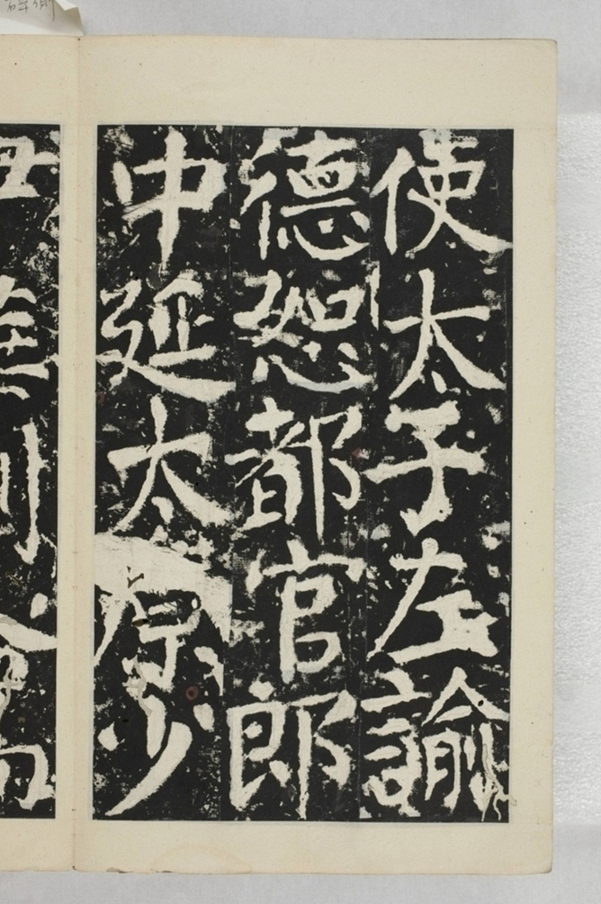 使太子左諭
德恕都官郎
中延太原少